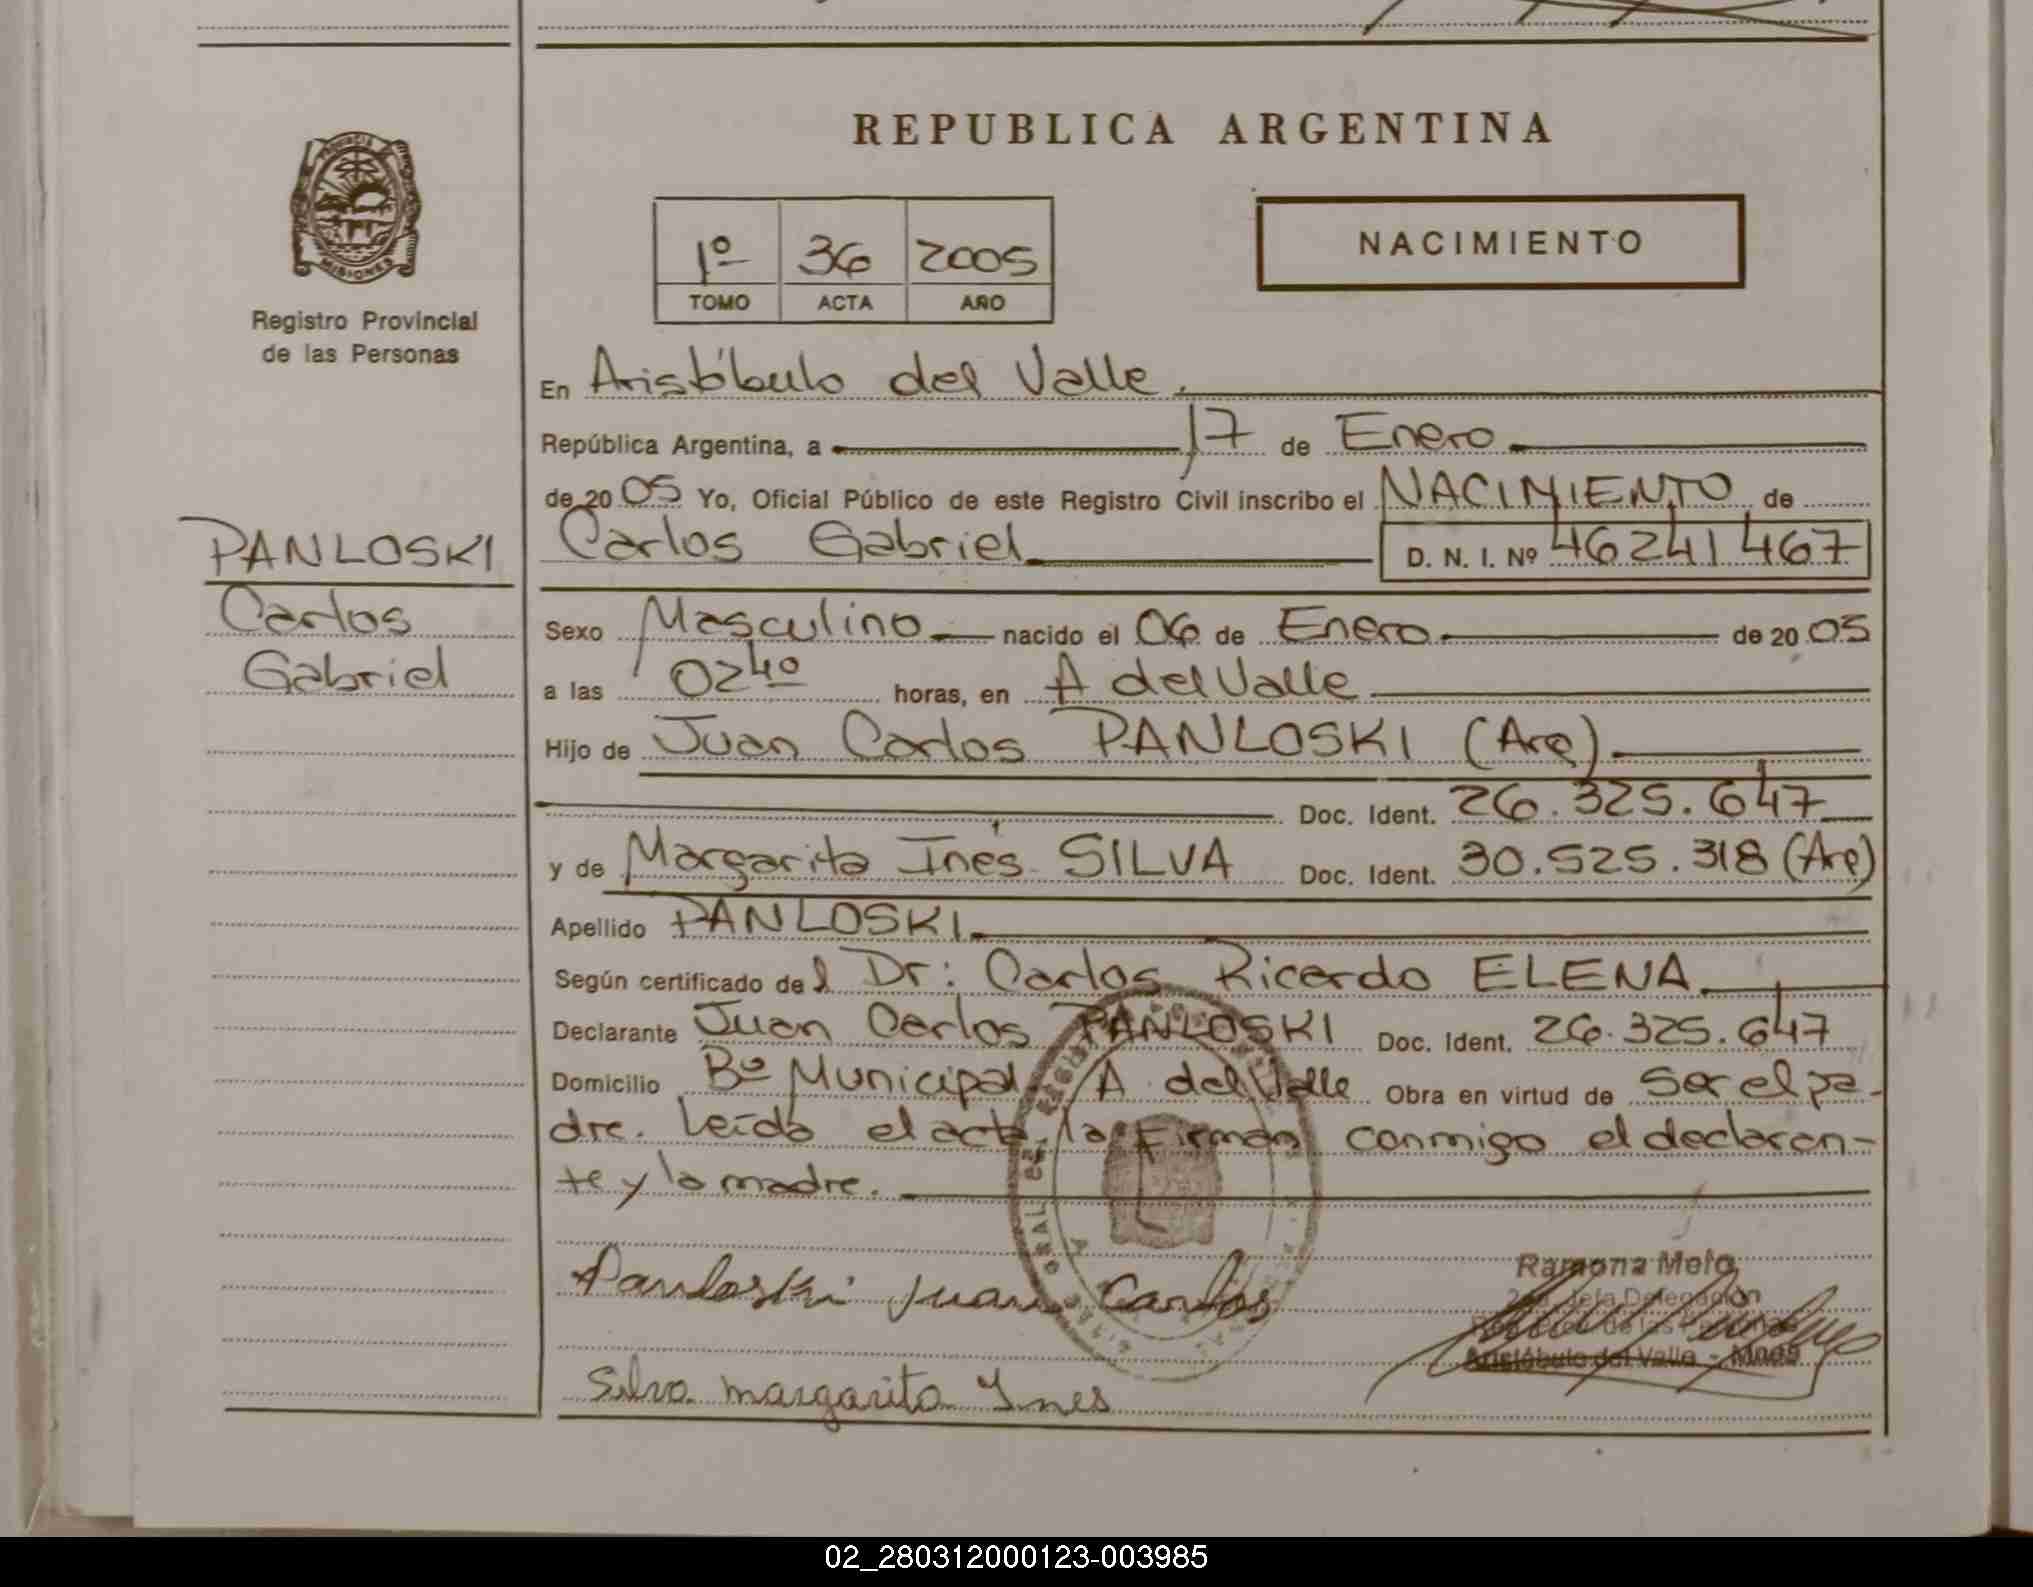 REPUBLICA ARGENTINA
PROVINCIA
MISIONES
Registro Provincial
de las Personas
1º 36 2005
TOMO ACTA AÑO
NACIMIENTO
En Aristóbulo del Valle.
República Argentina, a 17 de Enero
de 20 05 Yo, Oficial Público de este Registro Civil inscribo el NACIMIENTO de
Carlos Gabriel D. N. I. Nº 46241467
PANLOSKI
Carlos
Gabriel
Sexo Masculino nacido el 06 de Enero de 20 05
a las 02 40 horas, en A del Valle
Hijo de Juan Carlos PANLOSKI (Arg)
Doc. Ident. 26.325.647
y de Margarita Inés SILVA Doc. Ident. 30.525.318 (Arg)
Apellido PANLOSKI
Según certificado del Dr: Carlos Ricardo ELENA
Declarante Juan Carlos PANLOSKI Doc. Ident. 26.325.647
Domicilio Bº Municipal A del Valle Obra en virtud de ser el pa-
dre. Leída el acta, la firman conmigo el declaran-
te y la madre.
Panloski Juan Carlos
Ramona Melo
2da Jefa Delegación
de las Personas
Aristóbulo del Valle - Mnes
Silva margarita Ines
02_280312000123-003985